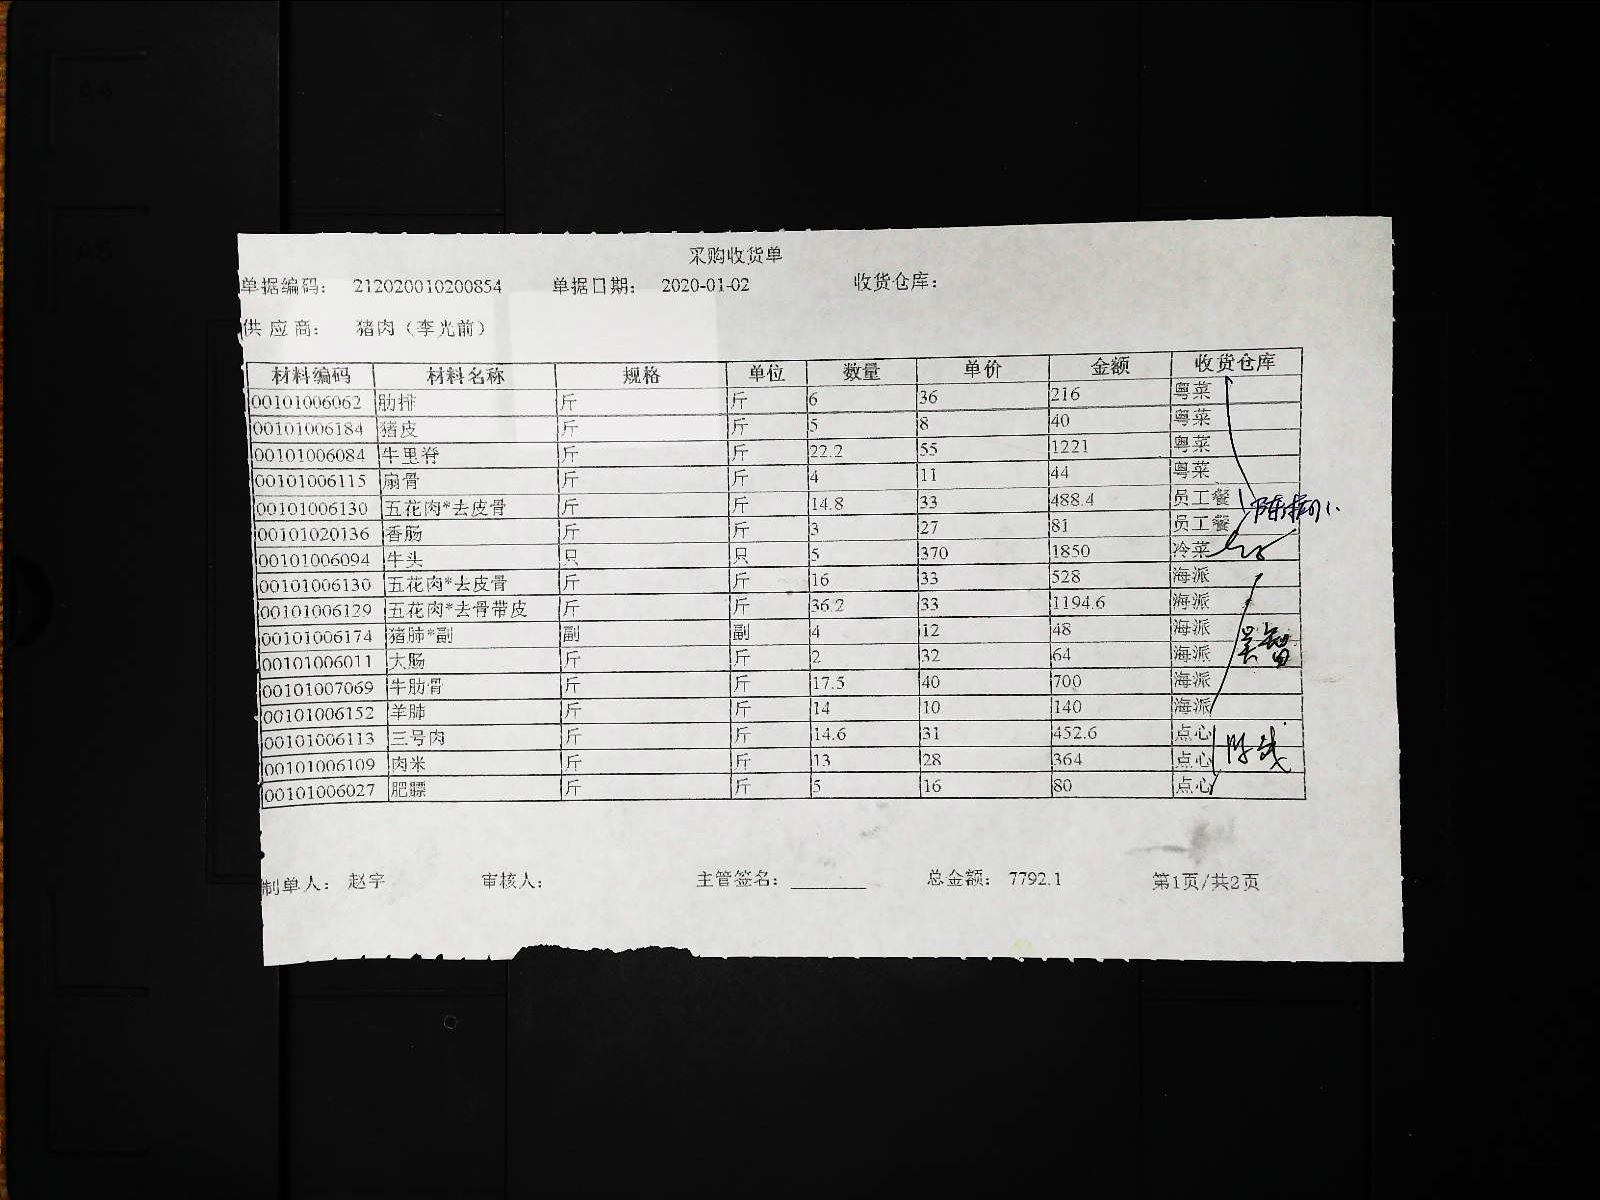 采购收货单
单据编码： 212020010200854 单据日期： 2020-01-02 收货仓库：
供 应 商： 猪肉（李光前）
材料编码 材料名称 规格 单位 数量 单价 金额 收货仓库
00101006062 肋排 斤 斤 6 36 216 粤菜
00101006184 猪皮 斤 斤 5 8 40 粤菜
00101006084 牛里脊 斤 斤 22.2 55 1221 粤菜
00101006115 扇骨 斤 斤 4 11 44 粤菜
00101006130 五花肉*去皮骨 斤 斤 14.8 33 488.4 员工餐
00101020136 香肠 斤 斤 3 27 81 员工餐
00101006094 牛头 只 只 5 370 1850 冷菜
00101006130 五花肉*去皮骨 斤 斤 16 33 528 海派
00101006129 五花肉*去骨带皮 斤 斤 36.2 33 1194.6 海派
00101006174 猪肺*副 副 副 4 12 48 海派
00101006011 大肠 斤 斤 2 32 64 海派
00101007069 牛肋骨 斤 斤 17.5 40 700 海派
00101006152 羊肺 斤 斤 14 10 140 海派
00101006113 三号肉 斤 斤 14.6 31 452.6 点心
00101006109 肉米 斤 斤 13 28 364 点心
00101006027 肥膘 斤 斤 5 16 80 点心
制单人： 赵宇 审核人： 主管签名： 总金额： 7792.1 第1页/共2页